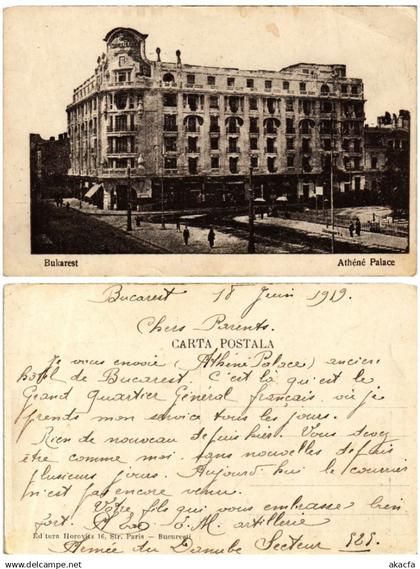 Bukarest
Athéné Palace
Bucarest 18 Juin 1919
Chers Parents.
CARTA POSTALA
Je vous envoie (Athéné Palace) ancien
hôtel de Bucarest. C'est là qu'est le
Grand Quartier Général français où je
prends mon service tous les jours.
Rien de nouveau depuis hier. Vous devez
être comme moi sans nouvelles depuis
plusieurs jours. Aujourd'hui le courrier
n'est pas encore venu.
Votre fils qui vous embrasse bien
fort.
artillerie
Editura Horovitz 16, Str. Paris — Bucuresti
Armée du Danube Secteur 525.
www.delcampe.net
akacfa